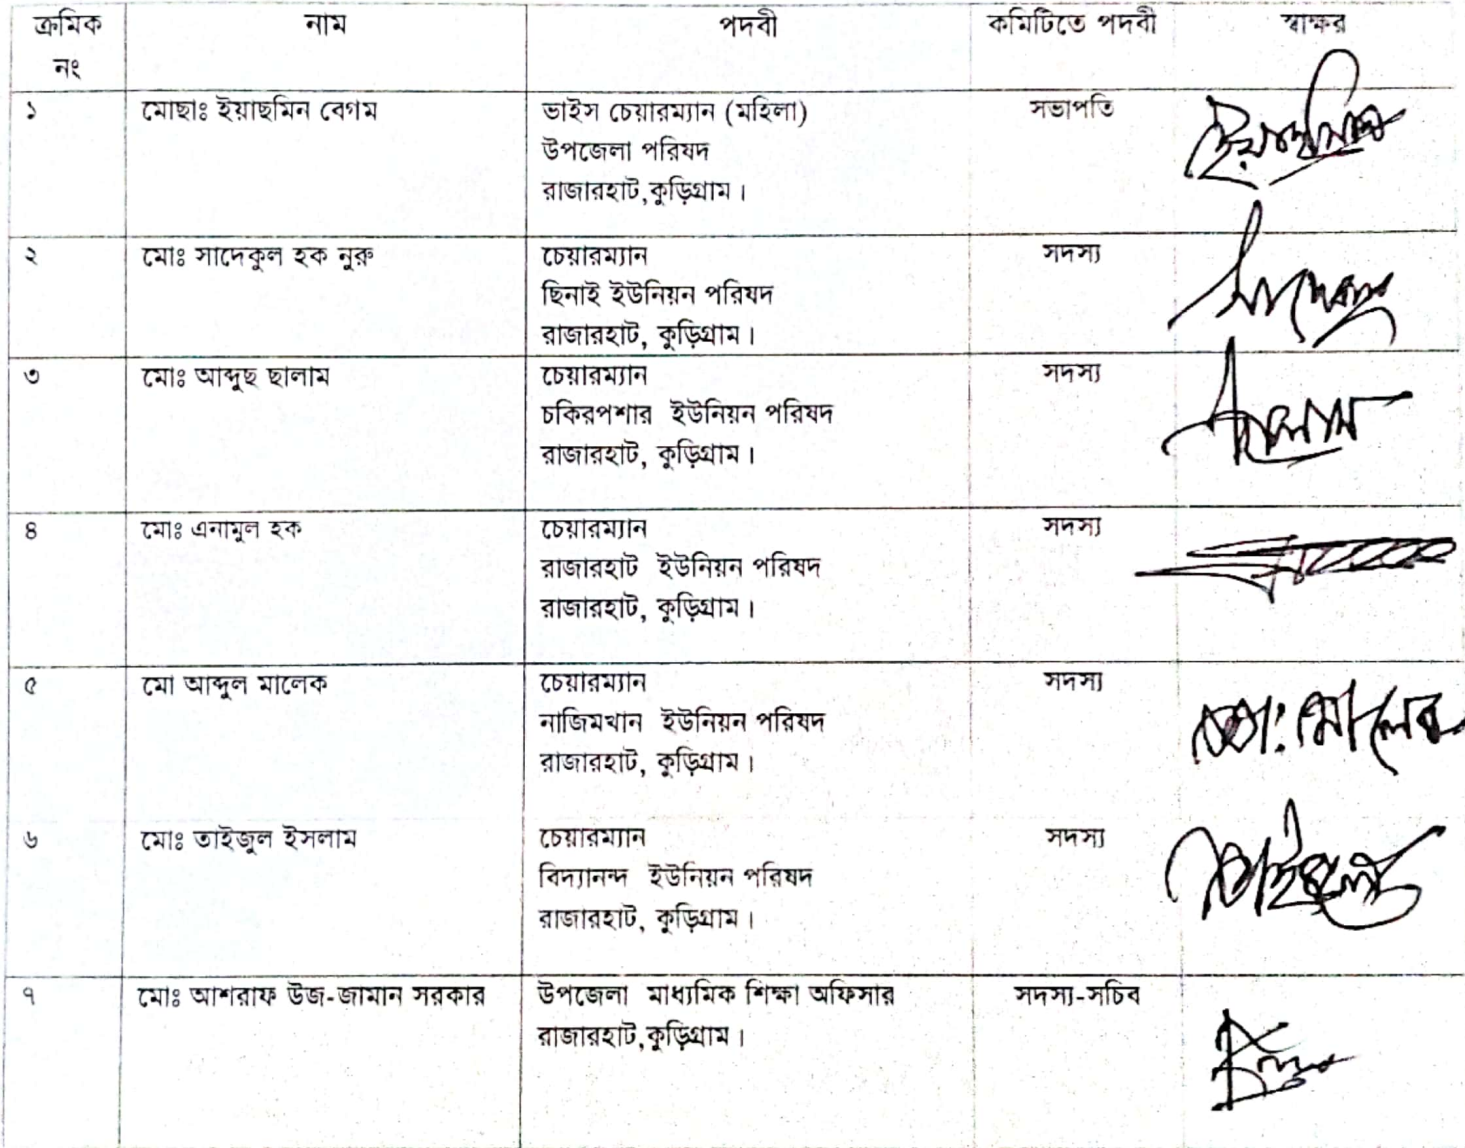 ক্রমিক নং নাম পদবী কমিটিতে পদবী স্বাক্ষর
১ মোছাঃ ইয়াছমিন বেগম ভাইস চেয়ারম্যান (মহিলা) সভাপতি
উপজেলা পরিষদ
রাজারহাট,কুড়িগ্রাম।
২ মোঃ সাদেকুল হক নুরু চেয়ারম্যান সদস্য
ছিনাই ইউনিয়ন পরিষদ
রাজারহাট, কুড়িগ্রাম।
৩ মোঃ আব্দুছ ছালাম চেয়ারম্যান সদস্য
চকিরপশার ইউনিয়ন পরিষদ
রাজারহাট, কুড়িগ্রাম।
৪ মোঃ এনামুল হক চেয়ারম্যান সদস্য
রাজারহাট ইউনিয়ন পরিষদ
রাজারহাট, কুড়িগ্রাম।
৫ মো আব্দুল মালেক চেয়ারম্যান সদস্য
নাজিমখান ইউনিয়ন পরিষদ
রাজারহাট, কুড়িগ্রাম।
৬ মোঃ তাইজুল ইসলাম চেয়ারম্যান সদস্য
বিদ্যানন্দ ইউনিয়ন পরিষদ
রাজারহাট, কুড়িগ্রাম।
৭ মোঃ আশরাফ উজ-জামান সরকার উপজেলা মাধ্যমিক শিক্ষা অফিসার সদস্য-সচিব
রাজারহাট,কুড়িগ্রাম।